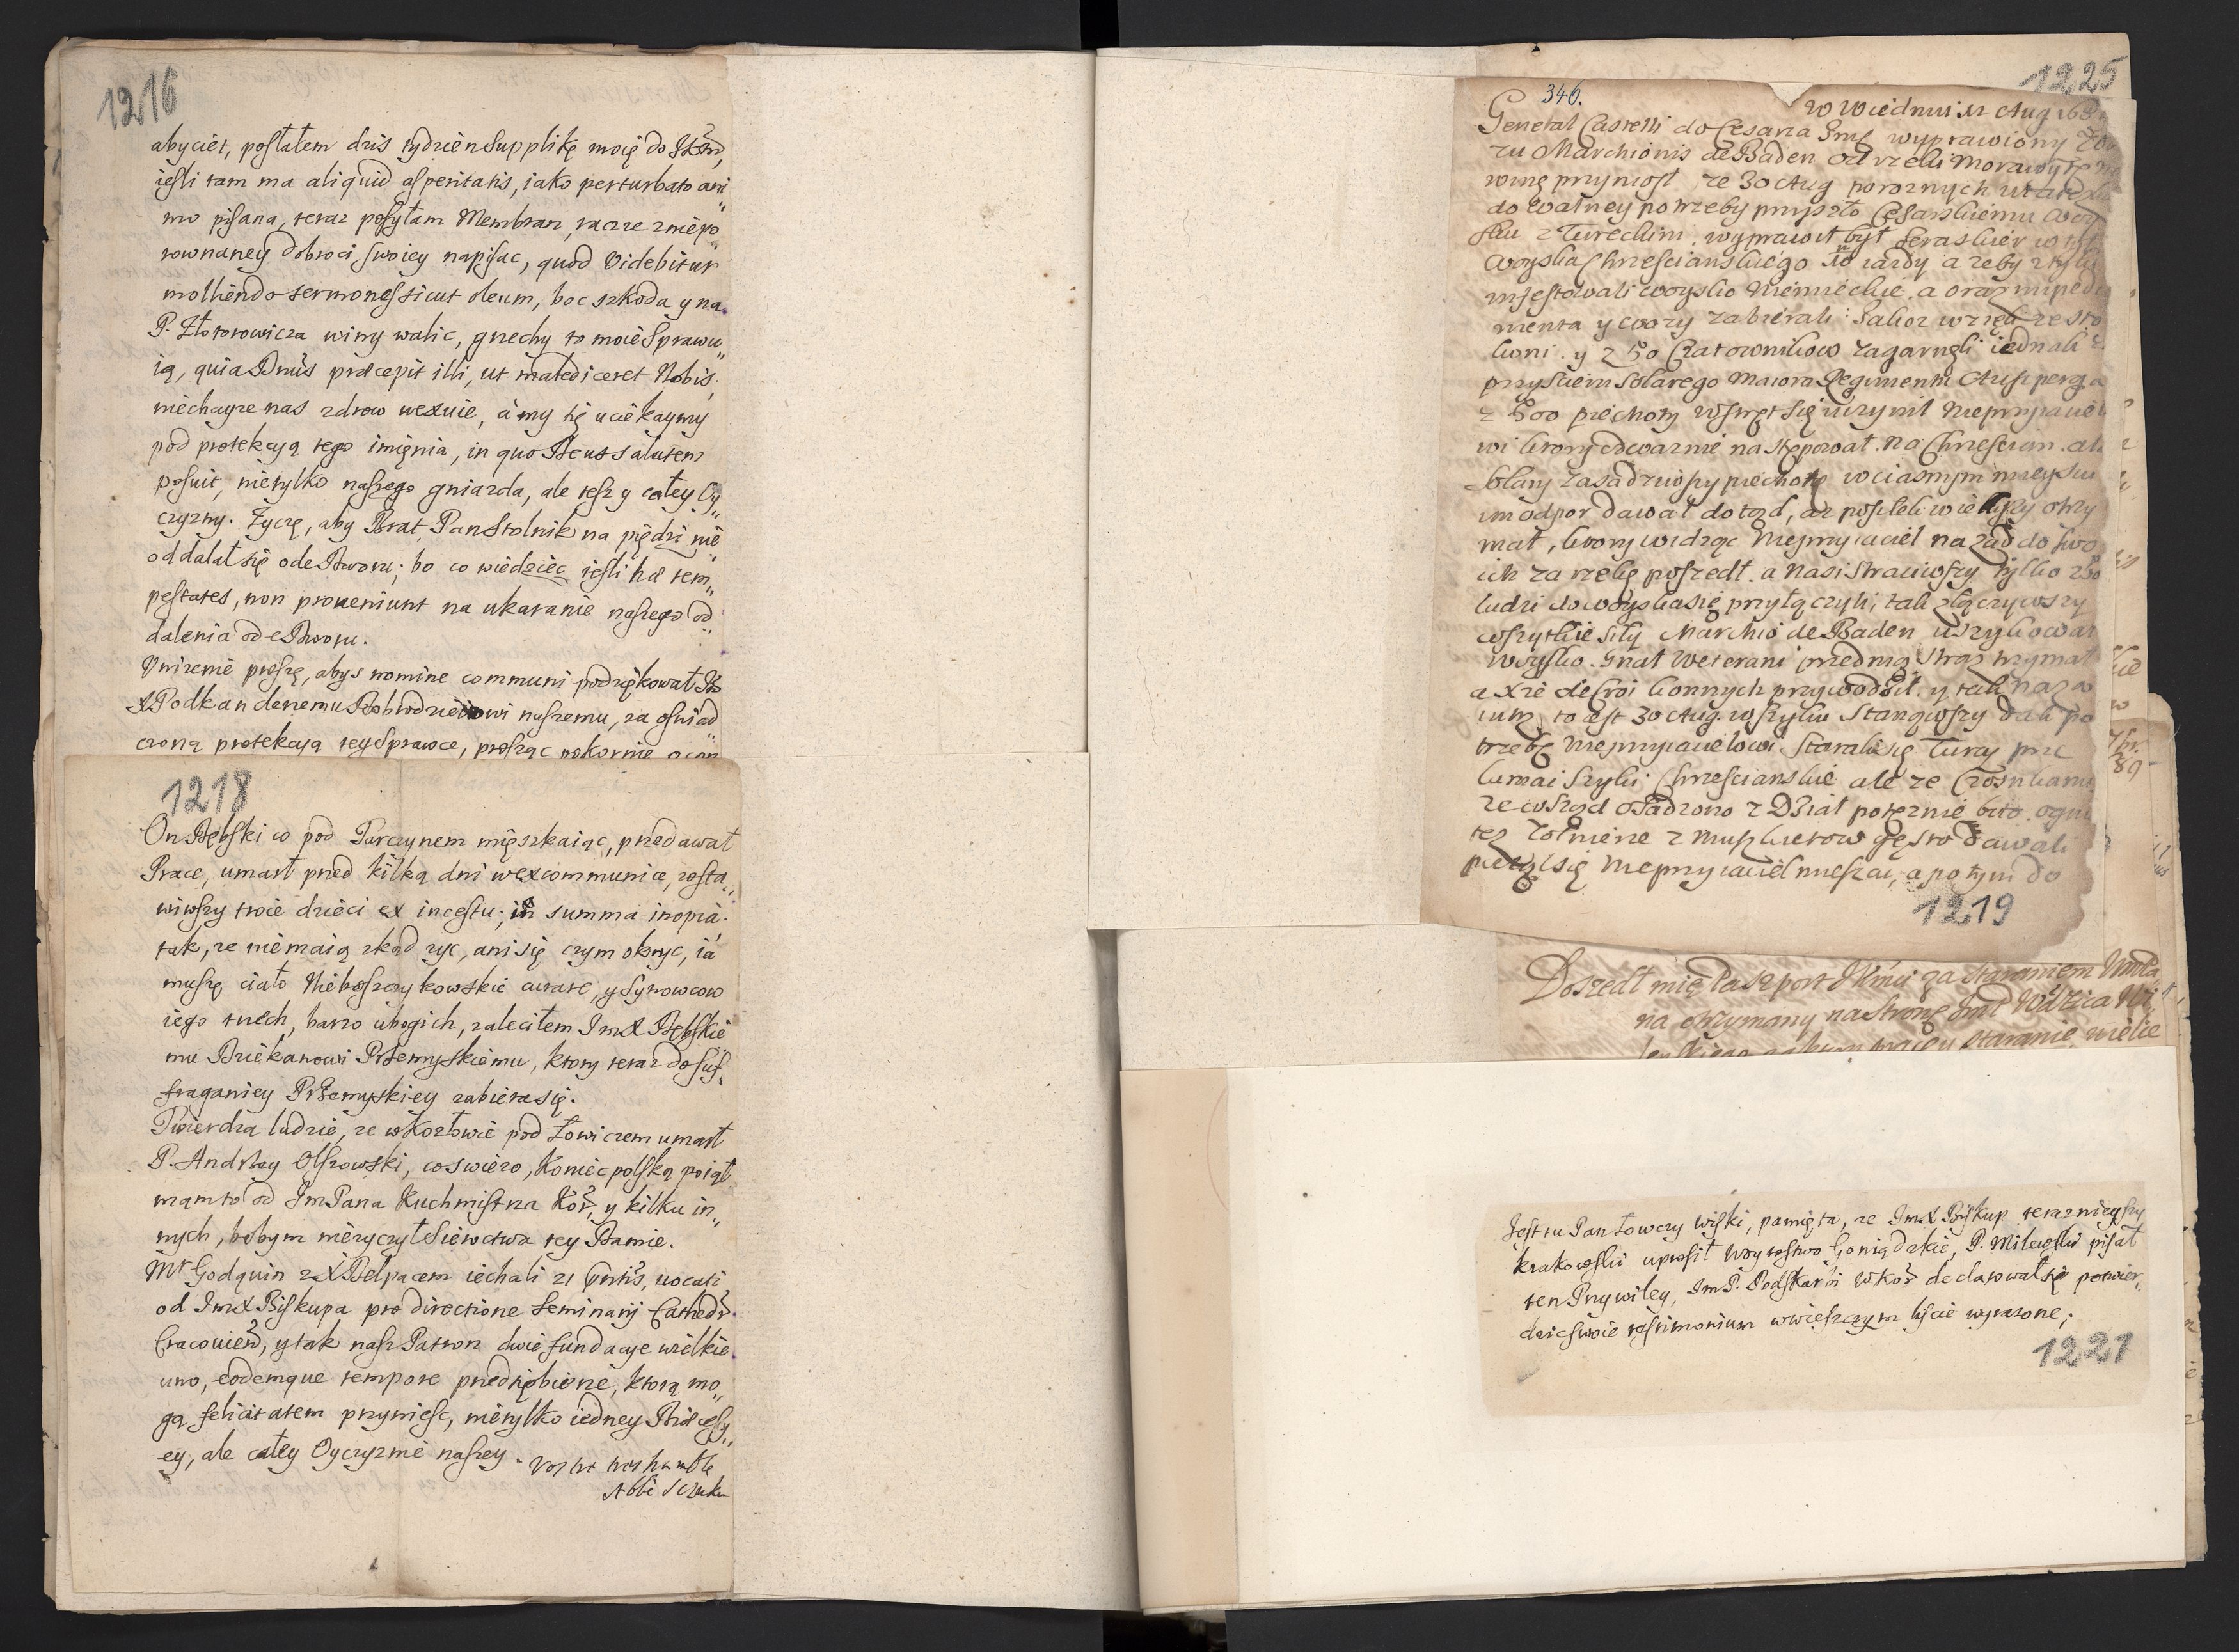 1216
abyciet, posłałem dziś tydzień Supplikę moię do
iesli tam ma aliquid asperitatis, iako perturbato ani„
mo pisana, teraz posyłam Membran, racze z niepo„
rownaney dobroci swoiey napisac, quod videbitur
molliendo sermones sicut oleum, boc szkoda y na
P. Złotorowicza winy walic, grzechy to moie Sprawu„
ią, quia Dnus præcepit illi, ut malediceret Nobis.
niechayze nas zdrow wexuie, á my się uciekaymy
pod protekcyą tego imięnia, in quo Deus salutem
posuit, nietylko naszego gniazda, ale tesz y całey Oy„
czyzny. Zyczę, aby Brat Pan Stolnik na piędzi nie
oddalał się ode Dworu; bo co wiedziec iesli hæ tem„
pestates, non proveniunt na ukaranie naszego od„
dalenia ode Dworu.
Vnizenie proszę, abys nomine communi podziękował
X Podkanderemu Dobrodzieiowi naszemu, za oswiad„
czoną protekcyą tey Sprawce, prosząc pokornie
1218
On Dębski co pod Parczynem mięszkaiąc, przedawał
Prace, umarł przed kilką dni w excommunice, zosta„
wiwszy troie dzieci ex incestu; in summa inopiá.
tak, ze nie maią zkąd zyc, ani się czym okryc, ia
muszę ciało Nieboszczykowskie curare, y Synowcow
iego trzech, barzo ubogich, zaleciłem ImX Dębskie
mu Dziekanowi Przemyskiemu, ktory teraz do Suf„
fraganiey Przemyskiey zabiera się.
Twierdzą ludzie, ze w Kozłowie pod Łowiczem umarł
P. Andrzey Olszowski, co swiezo, Koniecpolską poiął
mam to od Im Pana Kuchmistrza Kor, y kilku in„
nych, bobym nie zyczył Siewctwa tey Damie.
Mr Godquin z X Delpacem iechali 21 prntis, vocati
od ImX Biskupa pro directione Seminarij Cathedr.
Cracovien, y tak nasz Patron dwie fundacye wielkie
uno, eodemque tempore przedsiębierze, ktorą mo„
gą felicitatem przyniesc, nietylko iedney Diœcesy„
ey, ale całey Oyczyznie naszey.
346.
1225
W Wiedniu 12 Aug 168
General Castelli do Cesarza Jmę wyprawiony
zu Marchionis de Baden od rzeki Morawy tę no
winę przyniosł, ze 30 Aug po roznych utarczk
do walney potrzeby przyszło Cesarskiemu woy
sku z Tureckim. wyprawił był Seraskier w tył
Woyska Chrzescianskiego Tatardy a zeby z tyłu
infestowali woysko Niemieckie. a oraz impedi
menta y wozy zabierali. Jakoz wzięli ze sto
koni. y z 50 Czatowników zagarnęli iednak z
przysciem Solarego Maiora Regimentu Auszperga
z 500 piechoty wstręt się uczynił Nieprzyiacielo
wi ktory odwaznie następował na Chrzescian. ale
Solary zasadziwszy piechotę w ciasnym mieyscu
im odpor dawał dotąd, az posiłek wiekszy otrzy
mał, ktory widząc Nieprzyiaciel nazad do swo
ich za rzekę poszedł. a nasi straciwszy tylko 250
ludzi do woyska się przyłączyli, tak złączywszy
wszytkie siły Marchio de Baden uszykował
woysko. Gnał Veterani przednią straz trzymał
a Xze de Croi konnych przywodził. y tak nazaiutrz
to iest 30 Aug. w szyku stanąwszy dali po
trzebę Nieprzyiacielowi. Starali się Turcy prze
łamai szyki Chrzescianskie ale ze Czosnkami
ze wsząd osadzono z Dział potęznie bito. ogni
tez zołnierze z muszkietow gęsto dawali
począł się Nieprzyiaciel mieszac, a potym do
1219
Doszedł mię Paszport Jkmci za staraniem
na otrzymany na stronę Jmci
staranie, wielce
Jest tu Pan Łowczy Wiski, pamięta, ze ImX Biskup terazniejszy
Krakowski uprosił Woytostwo Goniądzkie, P. Milewski pisał
ten Przywiley, Im P. Podskarbi W Kor declarował się potwier„
dzic swoie testimonium w wieszczym liscie wyrazone;
1221